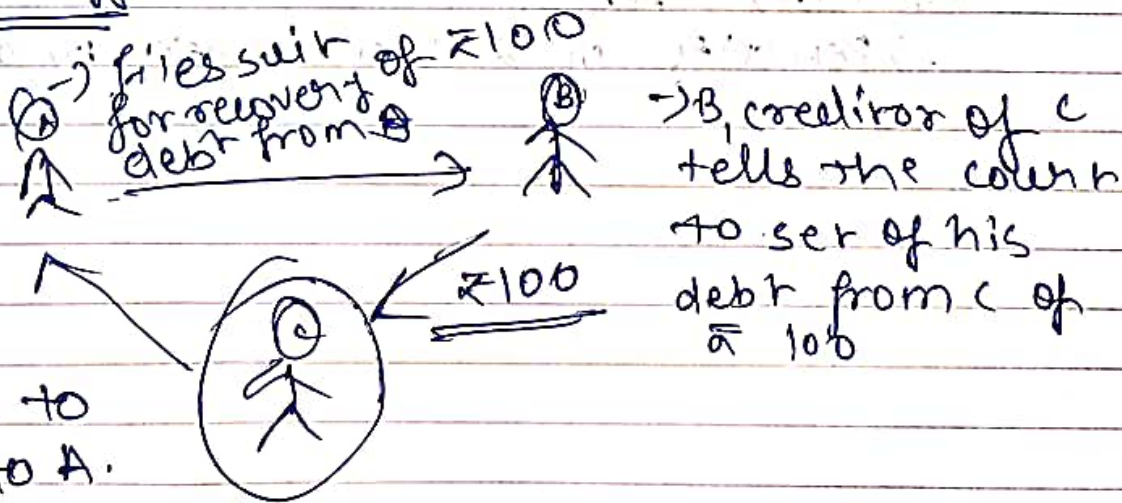 A → files suit of ₹100
for recovery of
debt from B
B
→ B, creditor of C
tells the court
to set of his
debt from C of
₹ 100
₹100
C
to
to A.